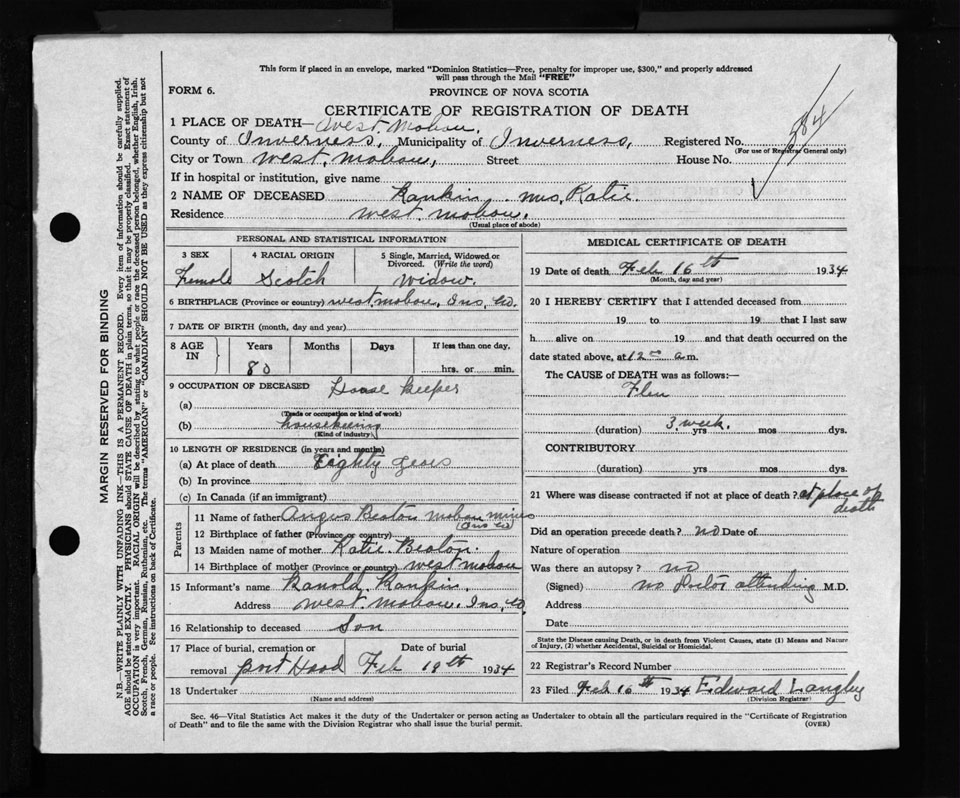 This form if placed in an envelope, marked "Dominion Statistics—Free, penalty for improper use, $300," and properly addressed
will pass through the Mail "FREE"
FORM 6.
PROVINCE OF NOVA SCOTIA
CERTIFICATE OF REGISTRATION OF DEATH
1 PLACE OF DEATH— West. Mabou.
County of Inverness. Municipality of Inverness, Registered No. 384
(For use of Registrar General only)
City or Town West. Mabou, Street House No.
If in hospital or institution, give name
2 NAME OF DECEASED Rankin. Mrs. Katie.
Residence West. Mabou.
(Usual place of abode)
PERSONAL AND STATISTICAL INFORMATION
3 SEX
Female
4 RACIAL ORIGIN
Scotch
5 Single, Married, Widowed or
Divorced. (Write the word)
Widow.
6 BIRTHPLACE (Province or country) West. Mabou, Ins, Co.
7 DATE OF BIRTH (month, day and year)
8 AGE
IN
Years Months Days If less than one day,
80 hrs. or min.
9 OCCUPATION OF DECEASED House Keeper
(a)
(Trade or occupation or kind of work)
(b) housekeeing
(Kind of industry)
10 LENGTH OF RESIDENCE (in years and months)
(a) At place of death Eighty years
(b) In province
(c) In Canada (if an immigrant)
Parents
11 Name of father Angus Beaton Mabou mines
12 Birthplace of father (Province or country) (Ins Co)
13 Maiden name of mother Katie. Beaton.
14 Birthplace of mother (Province or country) West Mabou
15 Informant's name Ranold. Rankin.
Address West. Mabou. Ins, Co.
16 Relationship to deceased Son
17 Place of burial, cremation or Date of burial
removal Port Hood Feb 18th 1934
18 Undertaker
(Name and address)
MEDICAL CERTIFICATE OF DEATH
19 Date of death Feb 16th 1934
(Month, day and year)
20 I HEREBY CERTIFY that I attended deceased from
19 to 19 that I last saw
h alive on 19 and that death occurred on the
date stated above, at 12 a.m.
The CAUSE of DEATH was as follows:—
Flu
(duration) 3. week. yrs mos dys.
CONTRIBUTORY
(duration) yrs mos dys.
21 Where was disease contracted if not at place of death? at place of
death
Did an operation precede death? no Date of
Nature of operation
Was there an autopsy? no
(Signed) no Doctor attending M.D.
Address
Date
State the Disease causing Death, or in death from Violent Causes, state (1) Means and Nature
of Injury, (2) whether Accidental, Suicidal or Homicidal.
22 Registrar's Record Number
23 Filed Feb 16th 1934 Edward Langley
(Division Registrar)
Sec. 46—Vital Statistics Act makes it the duty of the Undertaker or person acting as Undertaker to obtain all the particulars required in the "Certificate of Registration
of Death" and to file the same with the Division Registrar who shall issue the burial permit. (OVER)
MARGIN RESERVED FOR BINDING
N.B.—WRITE PLAINLY WITH UNFADING INK—THIS IS A PERMANENT RECORD. Every item of information should be carefully supplied.
AGE should be stated EXACTLY. PHYSICIANS should STATE CAUSE OF DEATH in plain terms, so that it may be properly classified. Exact statement of
OCCUPATION is very important. RACIAL ORIGIN will be described by stating to what people or race the deceased person belonged, whether English, Irish,
Scotch, French, German, Russian, Ruthenian, etc. The terms "AMERICAN" or "CANADIAN" SHOULD NOT BE USED as they express citizenship but not
a race or people. See instructions on back of Certificate.